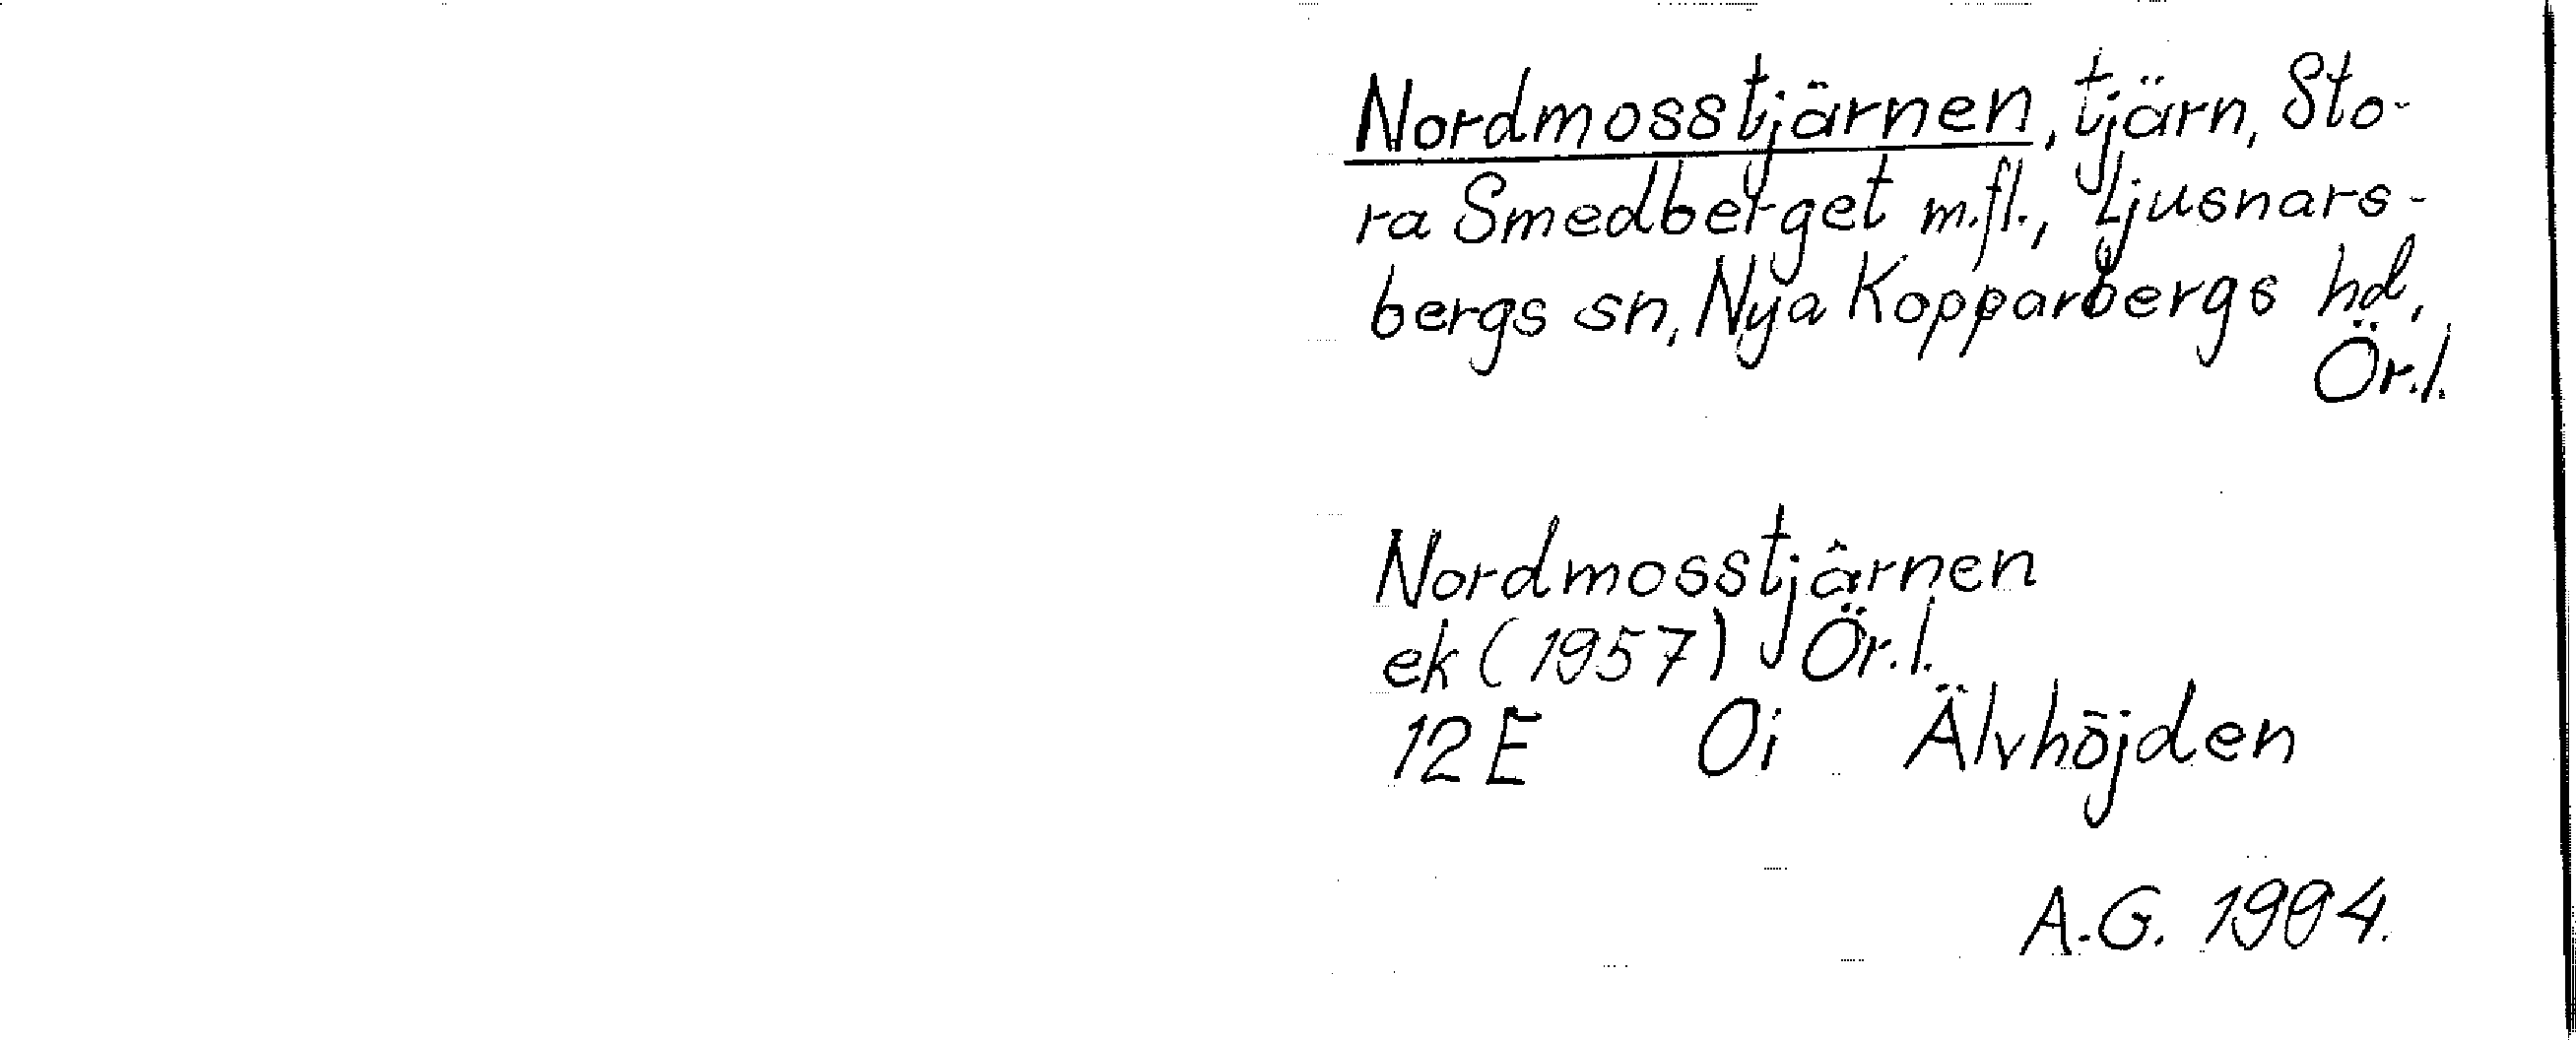 Nordmosstjärnen, tjärn, Sto-
ra Smedberget m.fl., Ljusnars-
bergs sn, Nya Kopparbergs hd,
Ör.l.
Nordmosstjärnen
ek (1957) Ör.l.
12E 0i Älvhöjden
A.G. 1994.